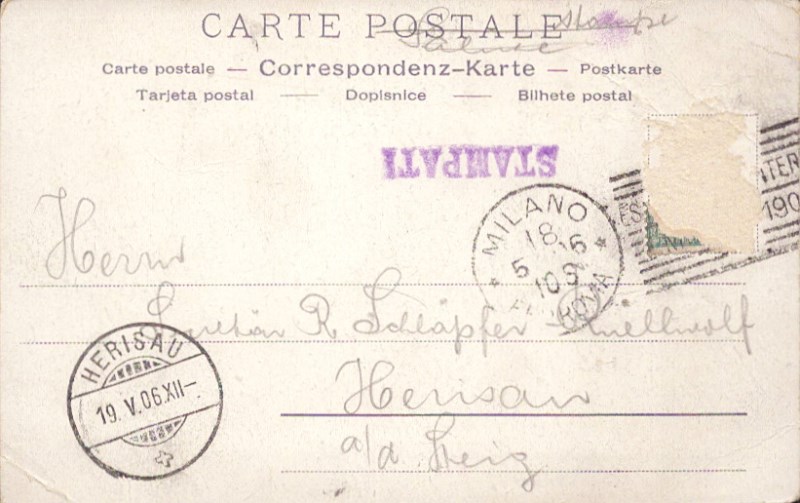 CARTE POSTALE
Stampe
Carte postale — Correspondenz-Karte — Postkarte
Tarjeta postal — Dopisnice — Bilhete postal
STAMPATI
MILANO
18.5
5 10S
FERROVIA
NTER
190
Herrn
Sekretär R. Schläpfer-Knellwolf
Herisau
a/d Steig
HERISAU
19. V. 06.XII–